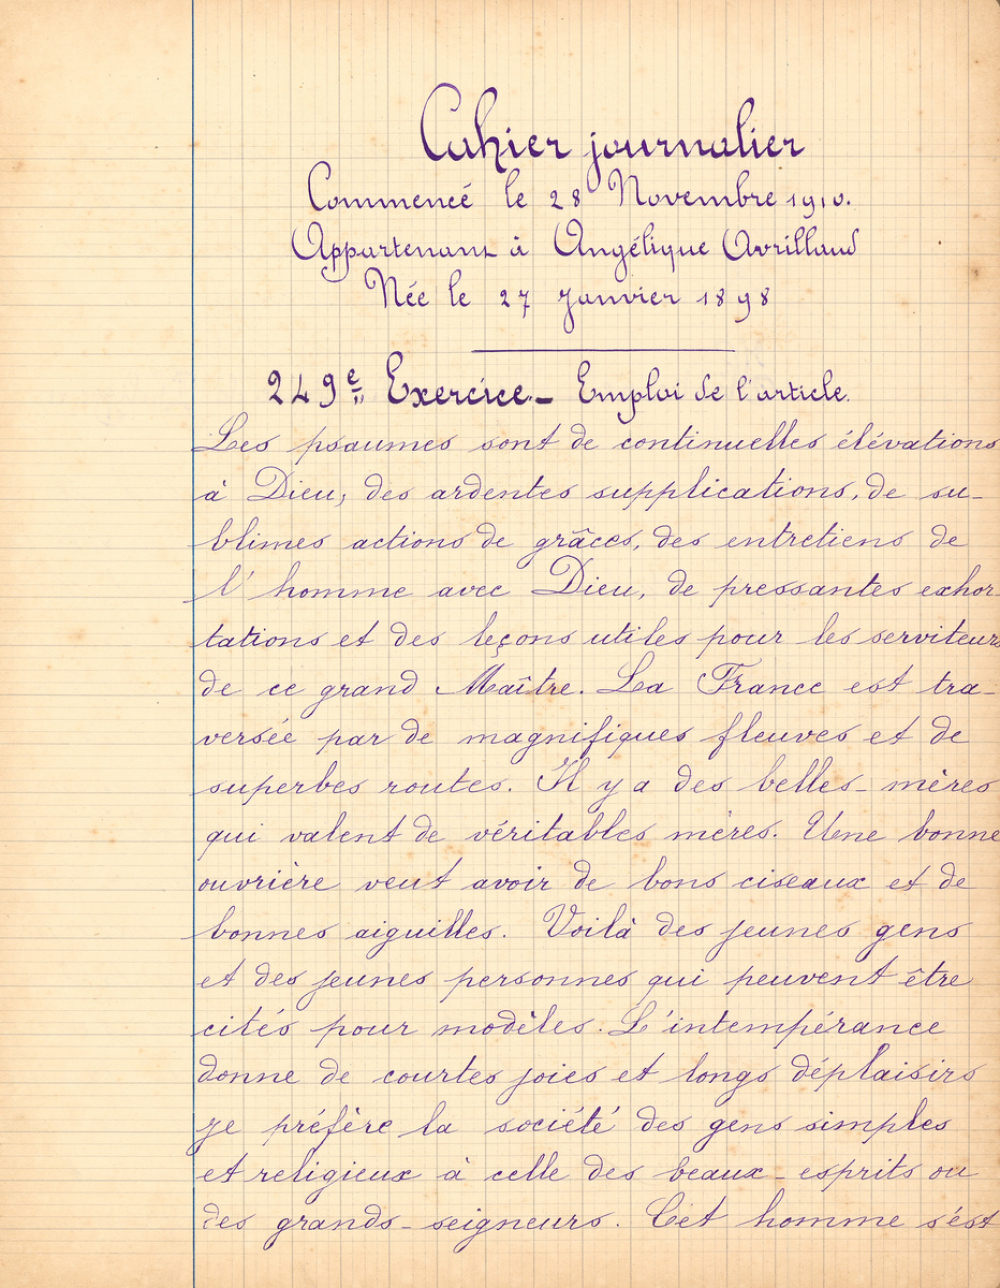 Cahier journalier
Commencé le 28 Novembre 1910.
Appartenant à Angélique Avrillaud
Née le 27 Janvier 1898
249e Exercice. – Emploi de l'article.
Les psaumes sont de continuelles élévations
à Dieu, des ardentes supplications, de su-
blimes actions de grâces, des entretiens de
l'homme avec Dieu, de pressantes exhor-
tations et des leçons utiles pour les serviteurs
de ce grand Maître. La France est tra-
versée par de magnifiques fleuves et de
superbes routes. Il y a des belles-mères
qui valent de véritables mères. Une bonne
ouvrière veut avoir de bons ciseaux et de
bonnes aiguilles. Voilà des jeunes gens
et des jeunes personnes qui peuvent être
cités pour modèles. L'intempérance
donne de courtes joies et longs déplaisirs
Je préfère la société des gens simples
et religieux à celle des beaux-esprits ou
des grands-seigneurs. Cet homme s'est